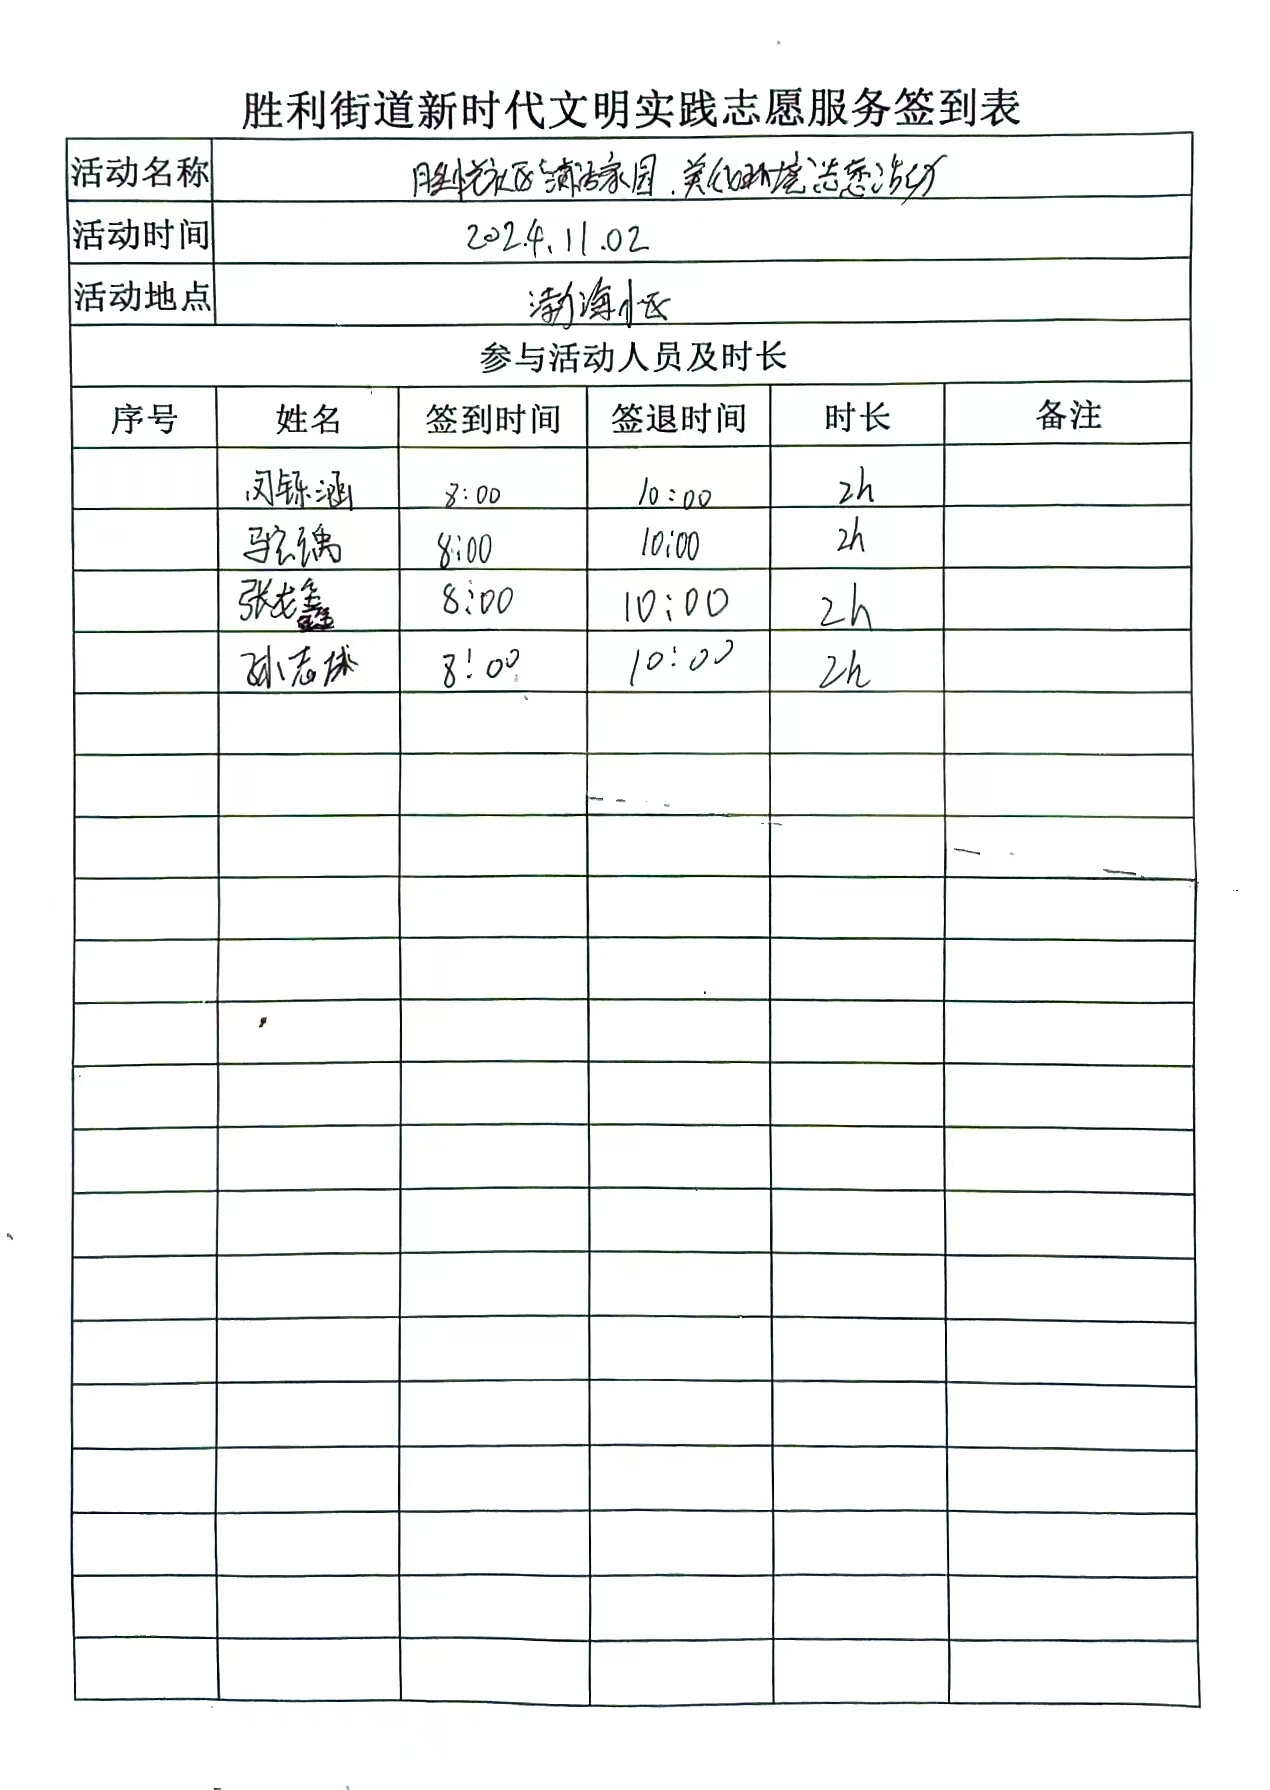 胜利街道新时代文明实践志愿服务签到表
活动名称 胜悦社区清洁家园、美化环境志愿活动
活动时间 2024.11.02
活动地点 渤海小区
参与活动人员及时长
序号 姓名 签到时间 签退时间 时长 备注
闵铄涵 8:00 10:00 2h
8:00 10:00 2h
张龙鑫 8:00 10:00 2h
孙志 8:00 10:00 2h